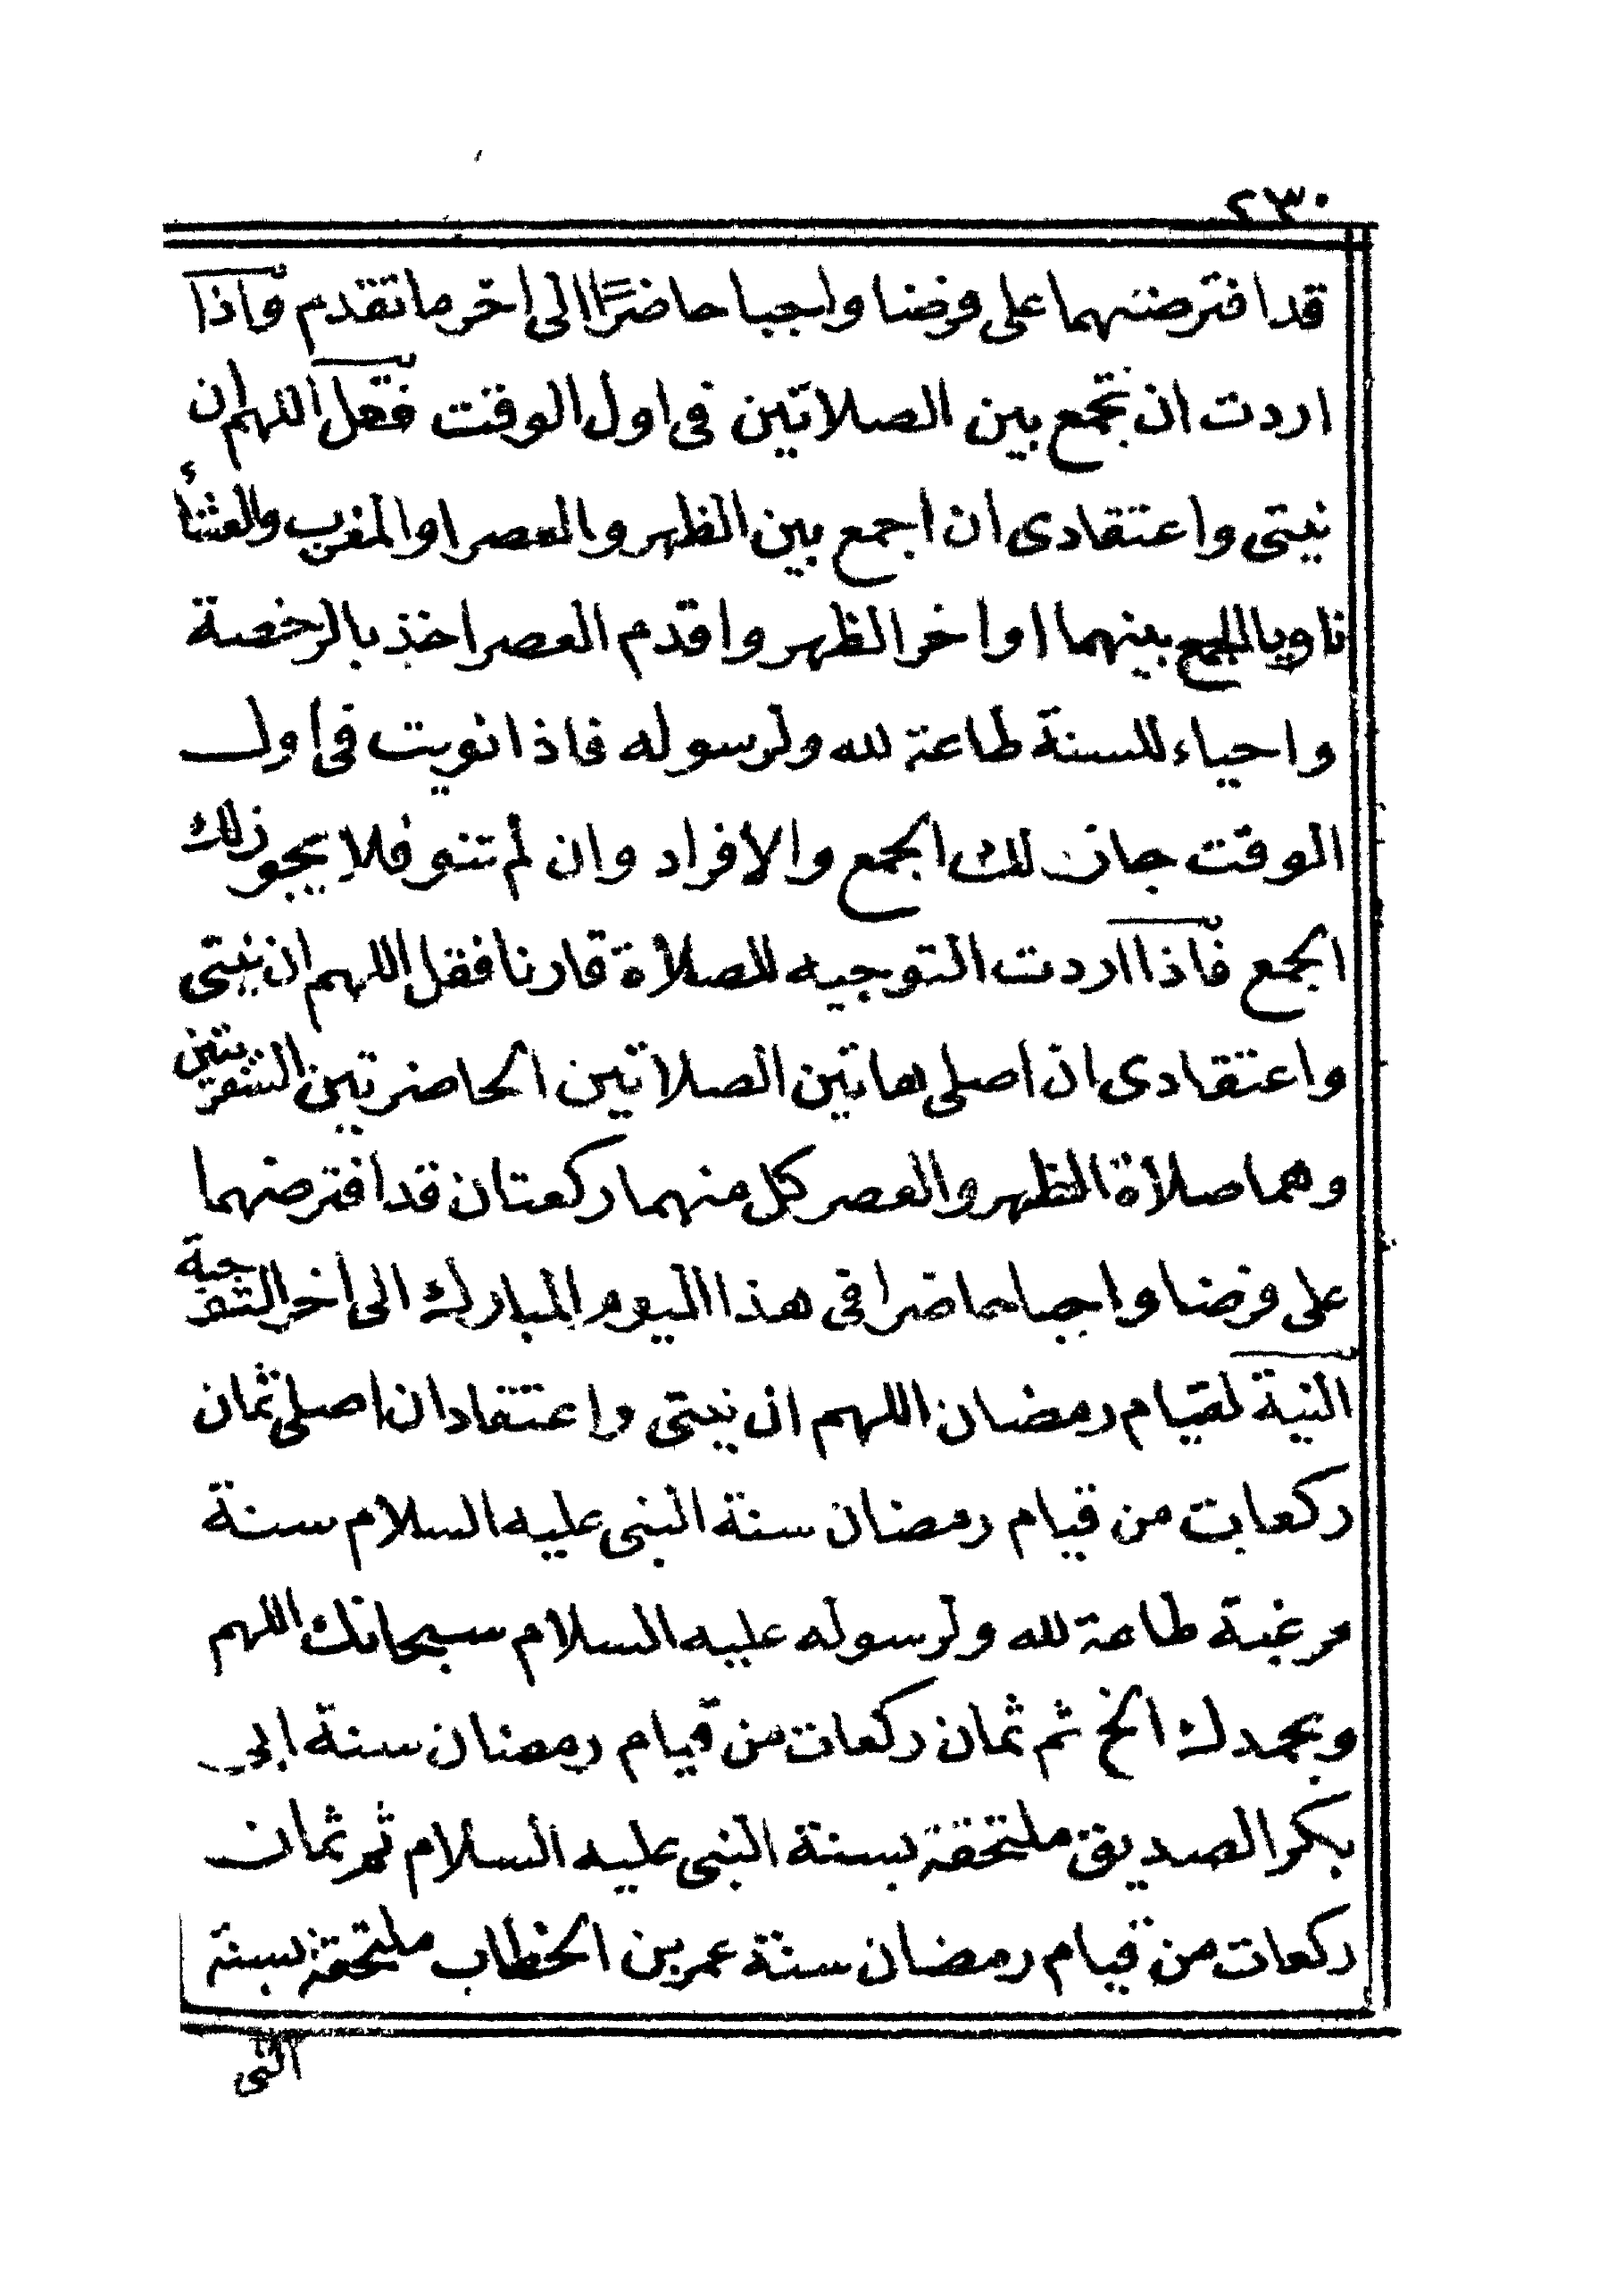 ٢٣٠
قد افترضتهما علي فرضا واجبا حاضرًا الى اخر ما تقدم واذا
اردت ان تجمع بين الصلاتين في اول الوقت فقل اللهم ان
نيتى واعتقادى ان اجمع بين الظهر والعصر او المغرب والعشاء
ناويا للجمع بينهما اواخر الظهر واقدم العصر اخذ بالرخصة
واحياء للسنة طاعة لله ولرسوله فاذا نويت في اول
الوقت جاز لك الجمع والافراد وان لم تنو فلا يجوز لك
الجمع فاذا اردت التوجيه للصلاة قارنا فقل اللهم ان نيتى
واعتقادى ان اصلى هاتين الصلاتين الحاضرتين السفريتين
وهما صلاة الظهر والعصر كل منهما ركعتان قد افترضهما
على فرضا واجبا حاضرا في هذا اليوم المبارك الى اخر التوجية
النية لقيام رمضان اللهم ان نيتى واعتقاد ان اصلى ثمان
ركعات من قيام رمضان سنة النبى عليه السلام سنة
مرغبة طاعة لله ولرسوله عليه السلام سبحانك اللهم
وبحمدك الخ ثم ثمان ركعات من قيام رمضان سنة ابي
بكر الصديق ملتحقة بسنة النبى عليه السلام ثم ثمان
ركعات من قيام رمضان سنة عمر بن الخطاب ملتحقة بسنة
النبى